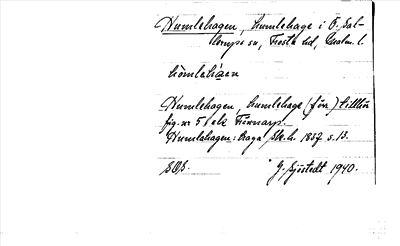 Humlehagen, humlehage i Ö. Sal-
lerups sn, Frosta hd, Malm. l.
Humlehagen, humlehage (förr) tillhör
fig. nr 5
Humlehagen: Haga Sk. h. 1857 s. 13.
G. Sjöstedt 1940.